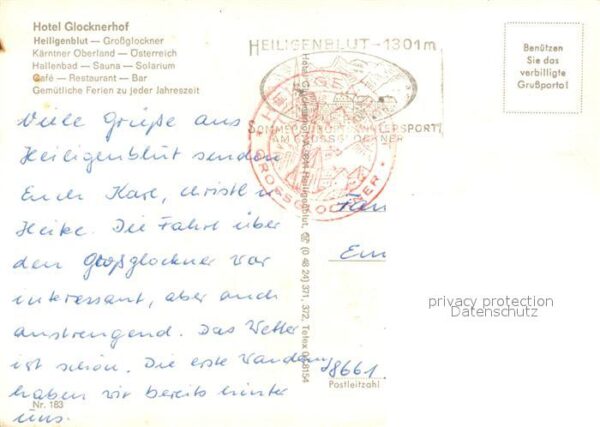 Hotel Glocknerhof
Heiligenblut — Großglockner
Kärntner Oberland — Österreich
Hallenbad — Sauna — Solarium
Café — Restaurant — Bar
Gemütliche Ferien zu jeder Jahreszeit
Viele Grüße aus
Heiligenblut senden
Euch Karl, Christl u
Heike. Die Fahrt über
den Großglockner war
interessant, aber auch
anstrengend. Das Wetter
ist schön. Die erste Wanderg
haben wir bereits hinter
uns.
Nr. 183
HEILIGENBLUT - 1301 m
GROSSGLOCKNER
Heiligenblut, ☎ (0 48 24) 371, 372, Telex 04-8154
Benützen
Sie das
verbilligte
Grußporto!
Fam
Em
privacy protection
Datenschutz
8661
Postleitzahl